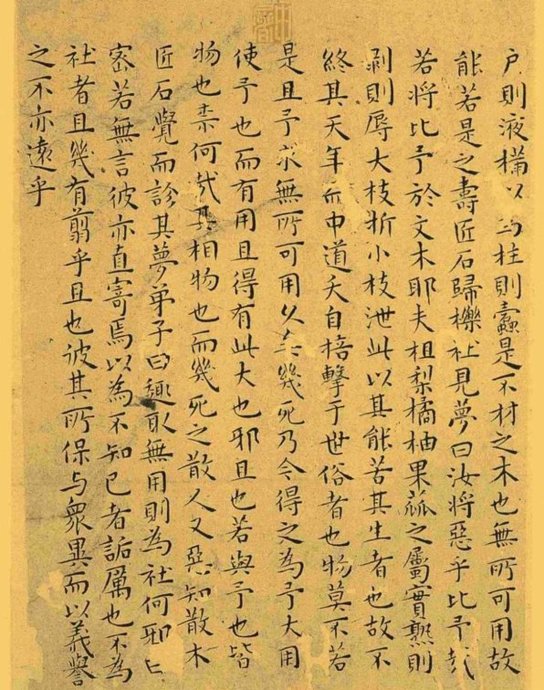 户則液樠以為柱則蠹是不材之木也無所可用故
能若是之壽匠石歸櫟社見夢曰汝將惡乎比予哉
若將比予於文木耶夫柤梨橘柚果蓏之屬實熟則
剥則辱大枝折小枝泄此以其能苦其生者也故不
終其天年而中道夭自掊擊于世俗者也物莫不若
是且予求無所可用久矣幾死乃今得之為予大用
使予也而有用且得有此大也邪且也若與予也皆
物也柰何哉其相物也而幾死之散人又惡知散木
匠石覺而診其夢弟子曰趣取無用則為社何邪曰
密若無言彼亦直寄焉以為不知己者詬厲也不為
社者且幾有翦乎且也彼其所保与眾異而以義譽
之不亦遠乎